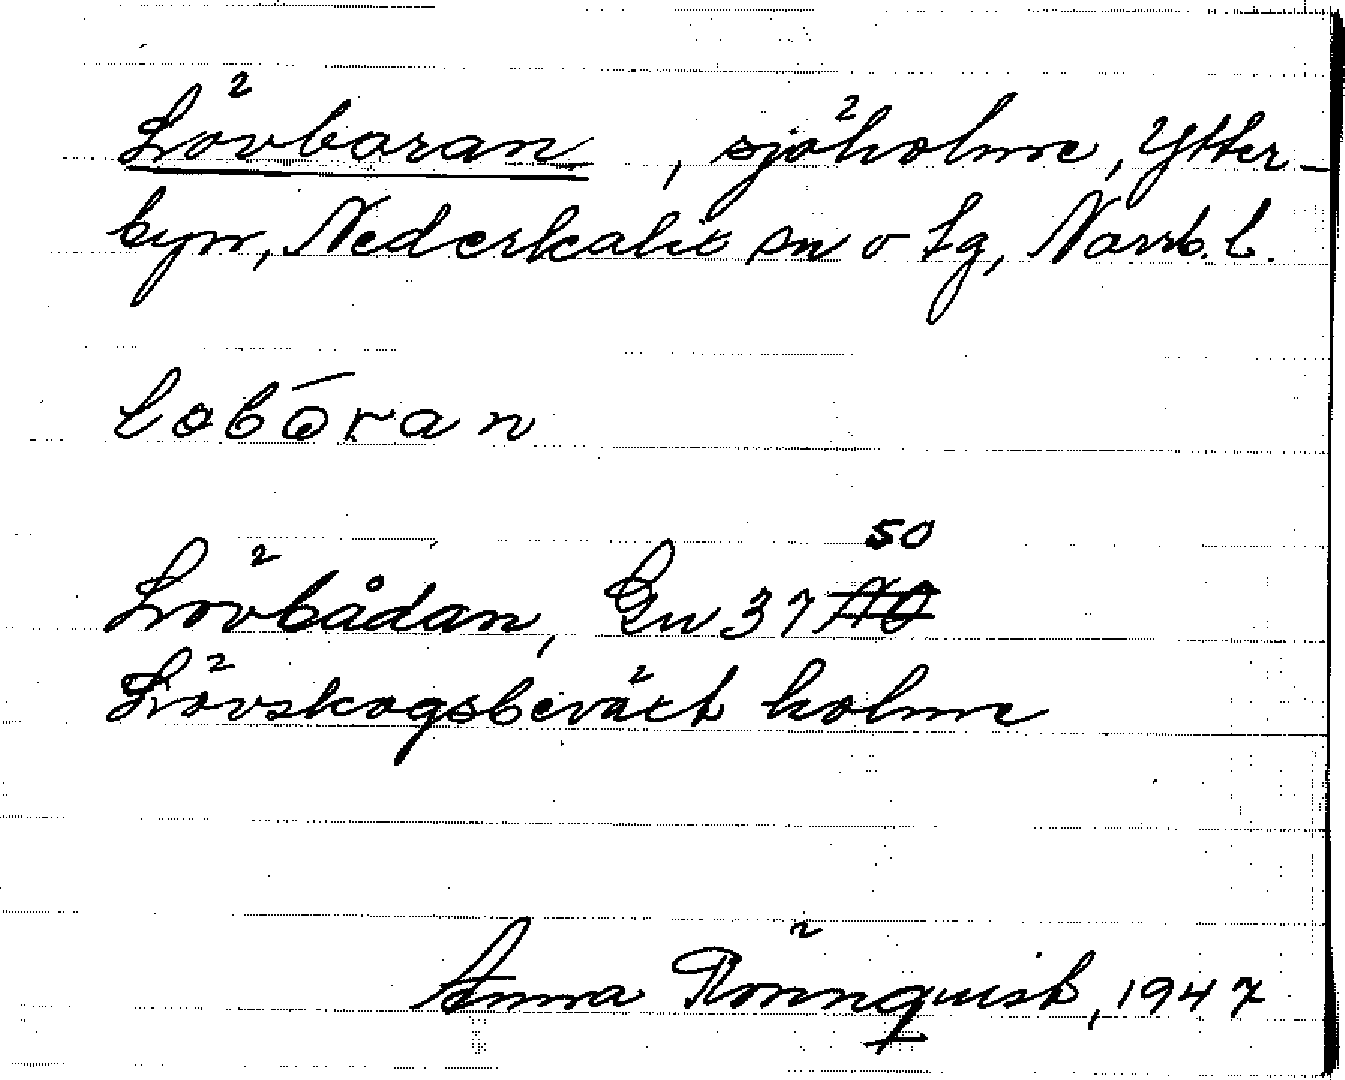 Lövboran, sjöholme, Ytter-
byn, Nederkalix sn o tg, Norrb. l.
lobōran
50
Lövbådan, Gn 37
Lövskogsbeväxt holme
Anna Rönnquist, 1947